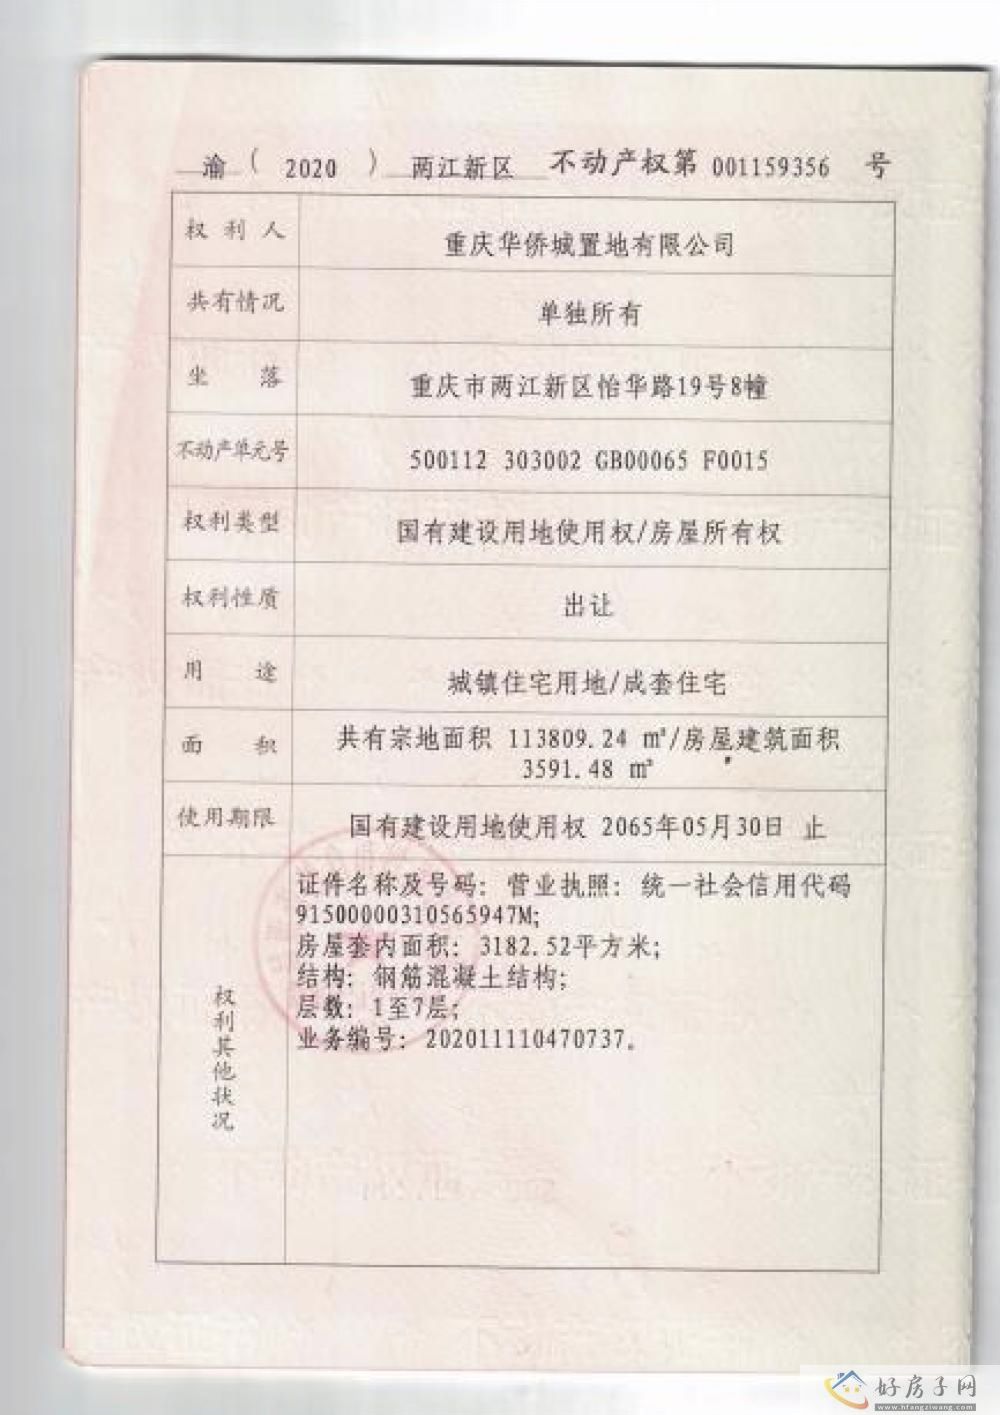 渝 ( 2020 ) 两江新区 不动产权第 001159356 号
权利人 重庆华侨城置地有限公司
共有情况 单独所有
坐落 重庆市两江新区怡华路19号8幢
不动产单元号 500112 303002 GB00065 F0015
权利类型 国有建设用地使用权/房屋所有权
权利性质 出让
用途 城镇住宅用地/成套住宅
面积 共有宗地面积 113809.24 ㎡/房屋建筑面积
3591.48 ㎡
使用期限 国有建设用地使用权 2065年05月30日 止
权利其他状况
证件名称及号码: 营业执照: 统一社会信用代码
91500000310565947M;
房屋套内面积: 3182.52平方米;
结构: 钢筋混凝土结构;
层数: 1至7层;
业务编号: 202011110470737。
好房子网
www.hfangziwang.com